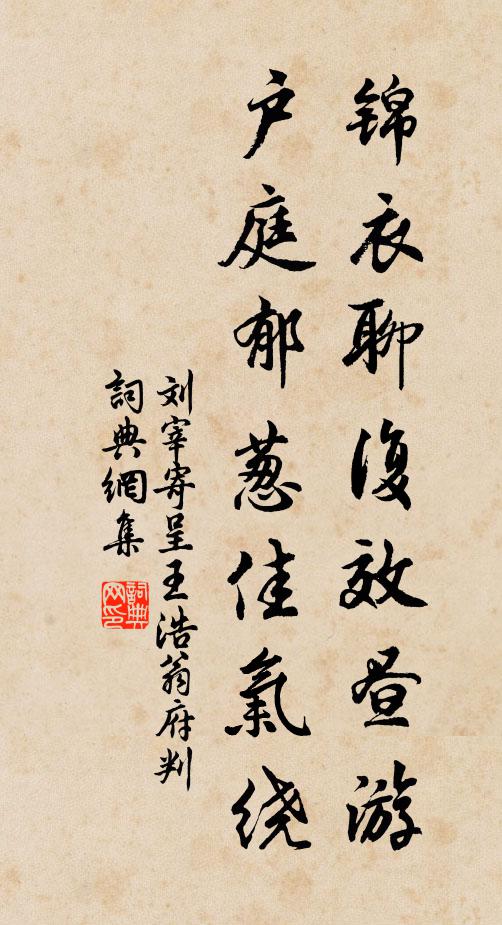 锦衣聊复效昼游
户庭郁葱佳氣绕
刘宰寄呈王浩翁府判
詞典網集
詞典
网印